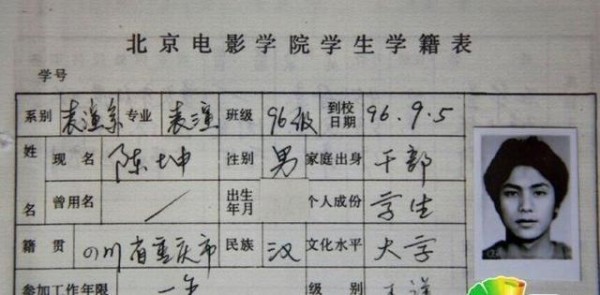 北京电影学院学生学籍表
学号
系别 表演系 专业 表演 班级 96级 到校日期 96.9.5
姓名 现名 陈坤 性别 男 家庭出身 干部
曾用名 / 出生年月 个人成份 学生
籍贯 四川省重庆市 民族 汉 文化水平 大学
参加工作年限 一年 级别